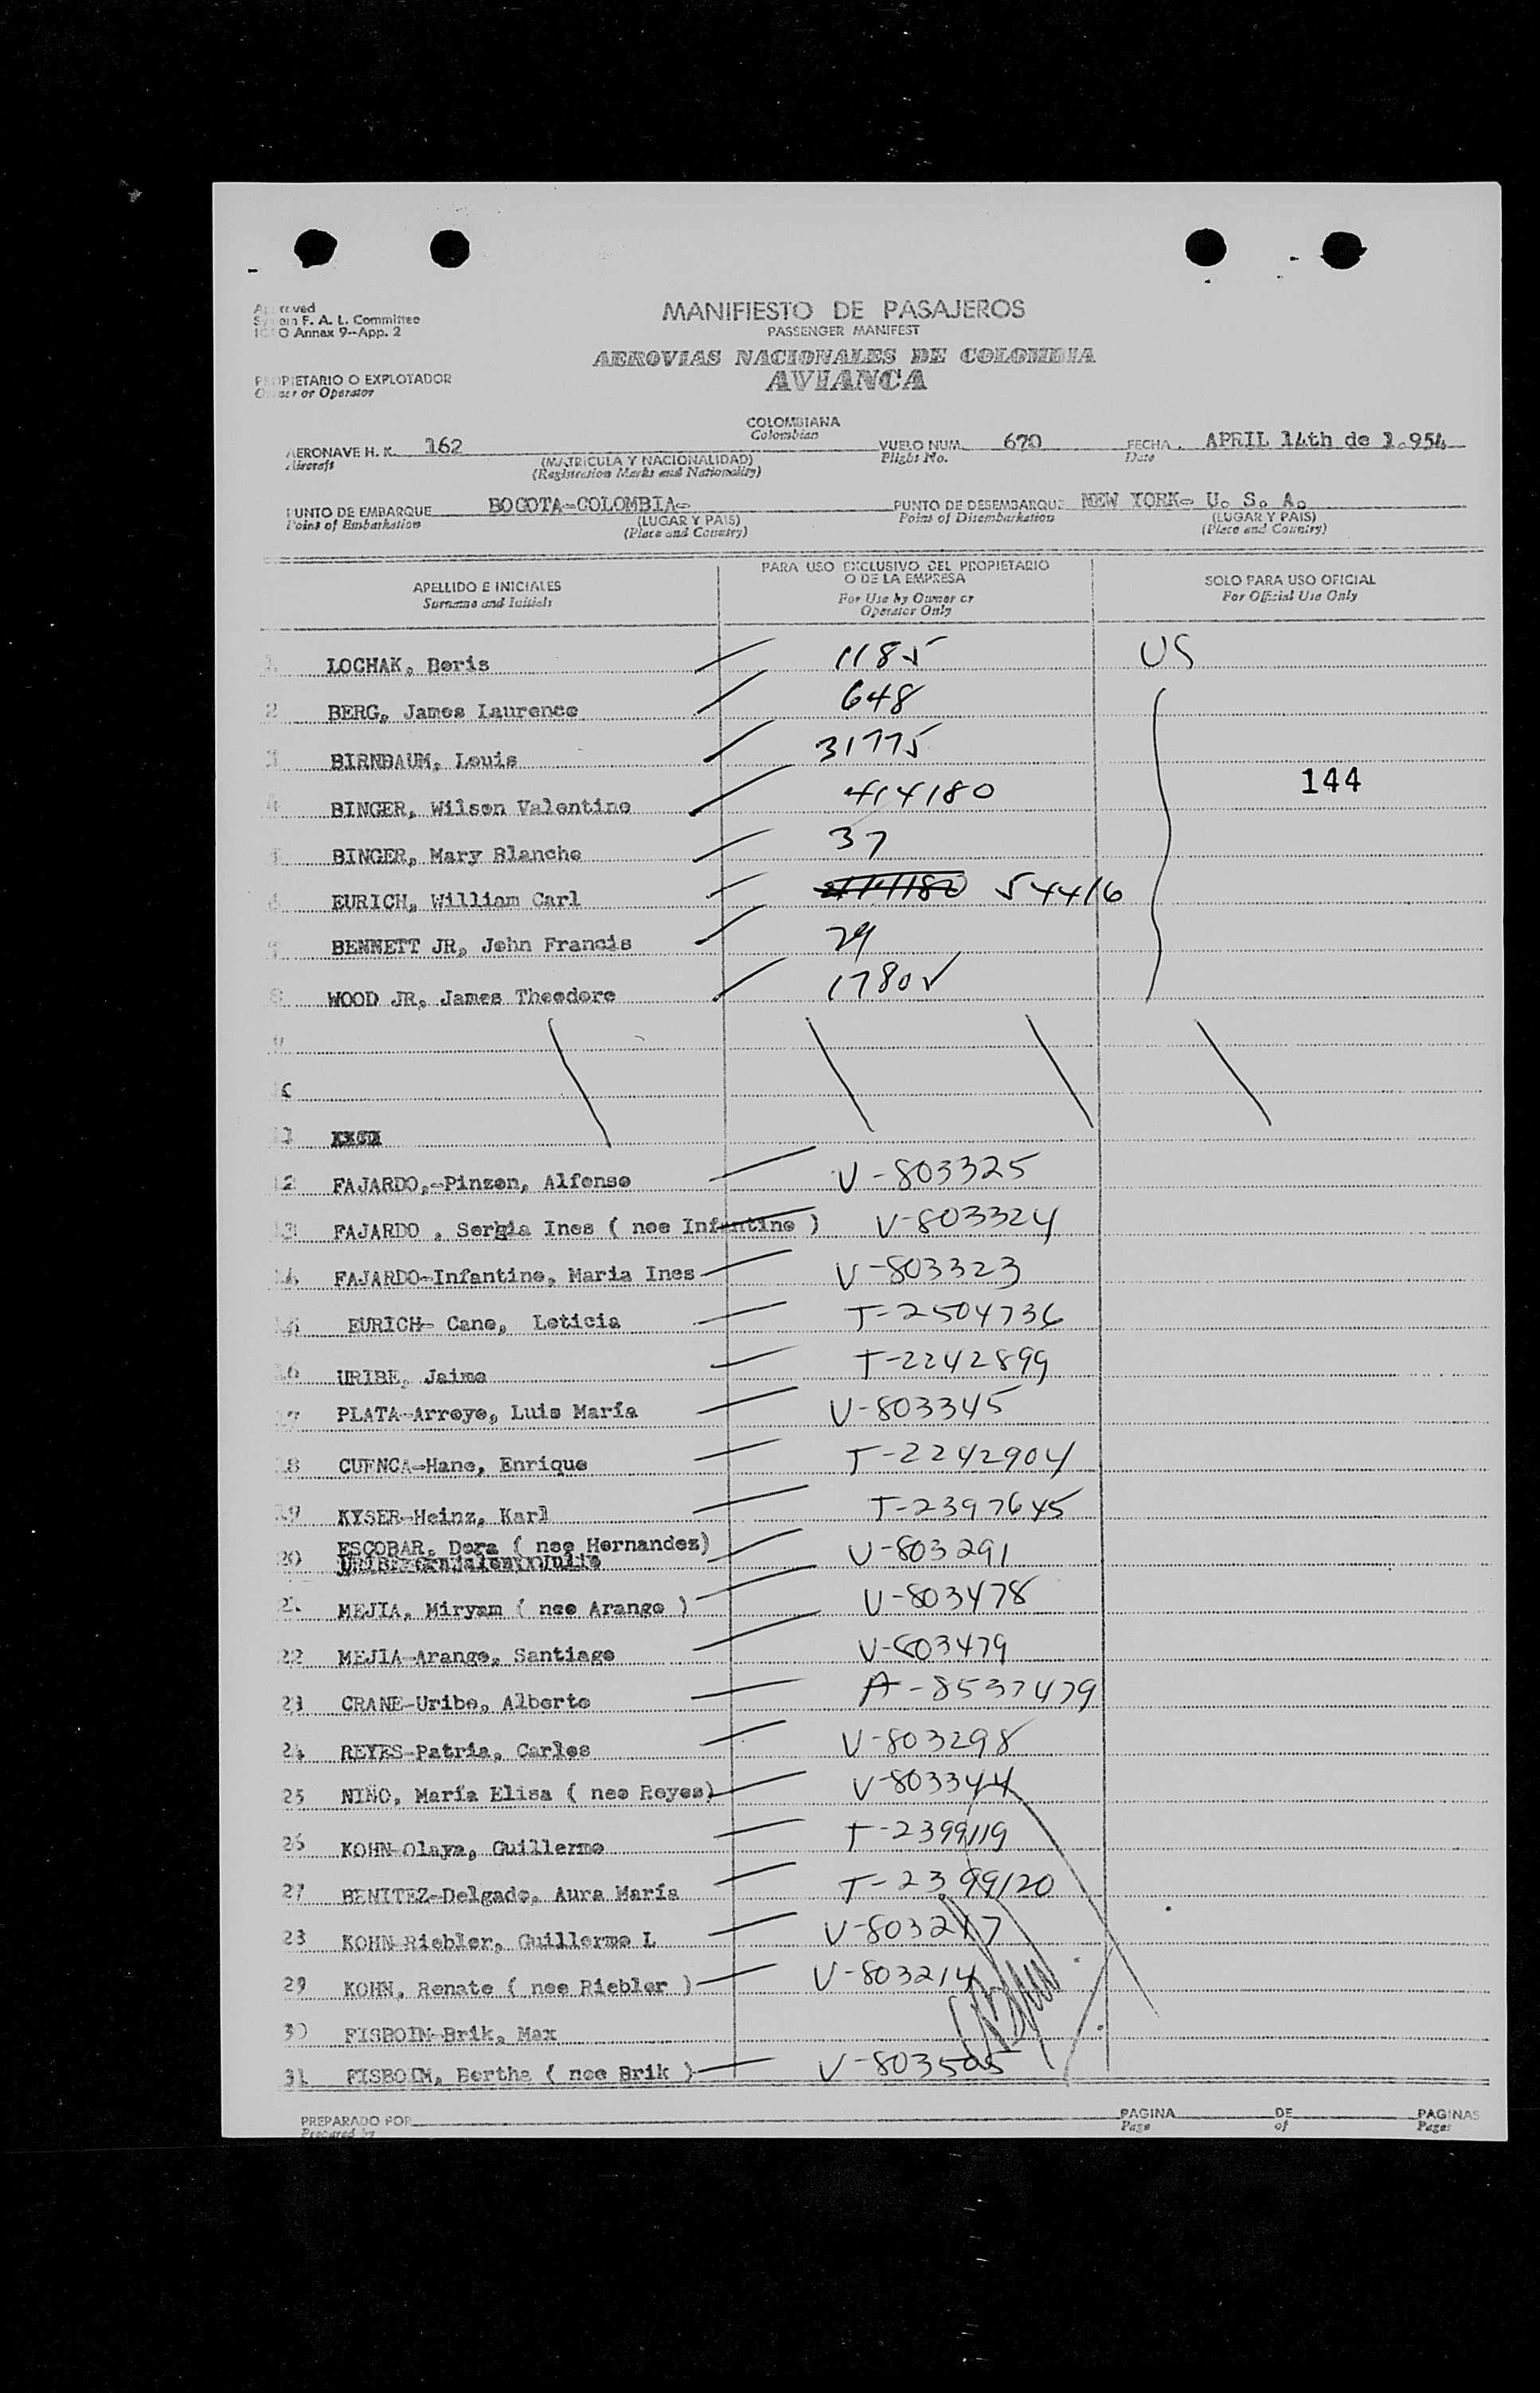 Approved
System F. A. L. Committee
ICAO Annex 9--App. 2
MANIFIESTO DE PASAJEROS
PASSENGER MANIFEST
AEROVIAS NACIONALES DE COLOMBIA
AVIANCA
PROPIETARIO O EXPLOTADOR
Owner or Operator
COLOMBIANA
Colombian
AERONAVE H. K. 162 VUELO NUM. 670 FECHA. APRIL 14th de 1.954
Aircraft (MATRICULA Y NACIONALIDAD) Flight No. Date
(Registration Marks and Nationality)
PUNTO DE EMBARQUE BOGOTA-COLOMBIA- PUNTO DE DESEMBARQUE NEW YORK- U. S. A.
Point of Embarkation (LUGAR Y PAIS) Point of Disembarkation (LUGAR Y PAIS)
(Place and Country) (Place and Country)
APELLIDO E INICIALES PARA USO EXCLUSIVO DEL PROPIETARIO O DE LA EMPRESA SOLO PARA USO OFICIAL
Surname and Initials For Use by Owner or Operator Only For Official Use Only
1 LOCHAK, Boris 1185 US
2 BERG, James Laurence 648
3 BIRNBAUM, Louis 31775
144
4 BINGER, Wilson Valentine 414180
5 BINGER, Mary Blanche 37
6 EURICH, William Carl 414180 54416
7 BENNETT JR, John Francis 29
8 WOOD JR, James Theodore 1780
9
10
11
12 FAJARDO,-Pinzon, Alfonso V-803325
13 FAJARDO , Sergia Ines ( nee Infantino ) V-803324
14 FAJARDO-Infantino, Maria Ines V-803323
15 EURICH- Cano, Leticia T-2504736
16 URIBE, Jaime T-2242899
17 PLATA-Arroyo, Luis María V-803345
18 CUENCA-Hano, Enrique T-2242904
19 KYSER-Heinz, Karl T-2397645
20 ESCOBAR, Dora ( nee Hernandez) V-803291
21 MEJIA, Miryam ( nee Arango ) V-803478
22 MEJIA-Arango, Santiago V-803479
23 CRANE-Uribe, Alberto A-8537479
24 REYES-Patria, Carlos V-803298
25 NIÑO, María Elisa ( nee Reyes) V-803344
26 KOHN-Olaya, Guillermo T-2399119
27 BENITEZ-Delgado, Aura María T-2399120
28 KOHN-Riebler, Guillermo L V-803217
29 KOHN, Renate ( nee Riebler ) V-803214
30 FISBOIM-Brik, Max
31 FISBOIM, Bertha ( nee Brik ) V-803505
PREPARADO POR PAGINA DE PAGINAS
Prepared by Page of Pages